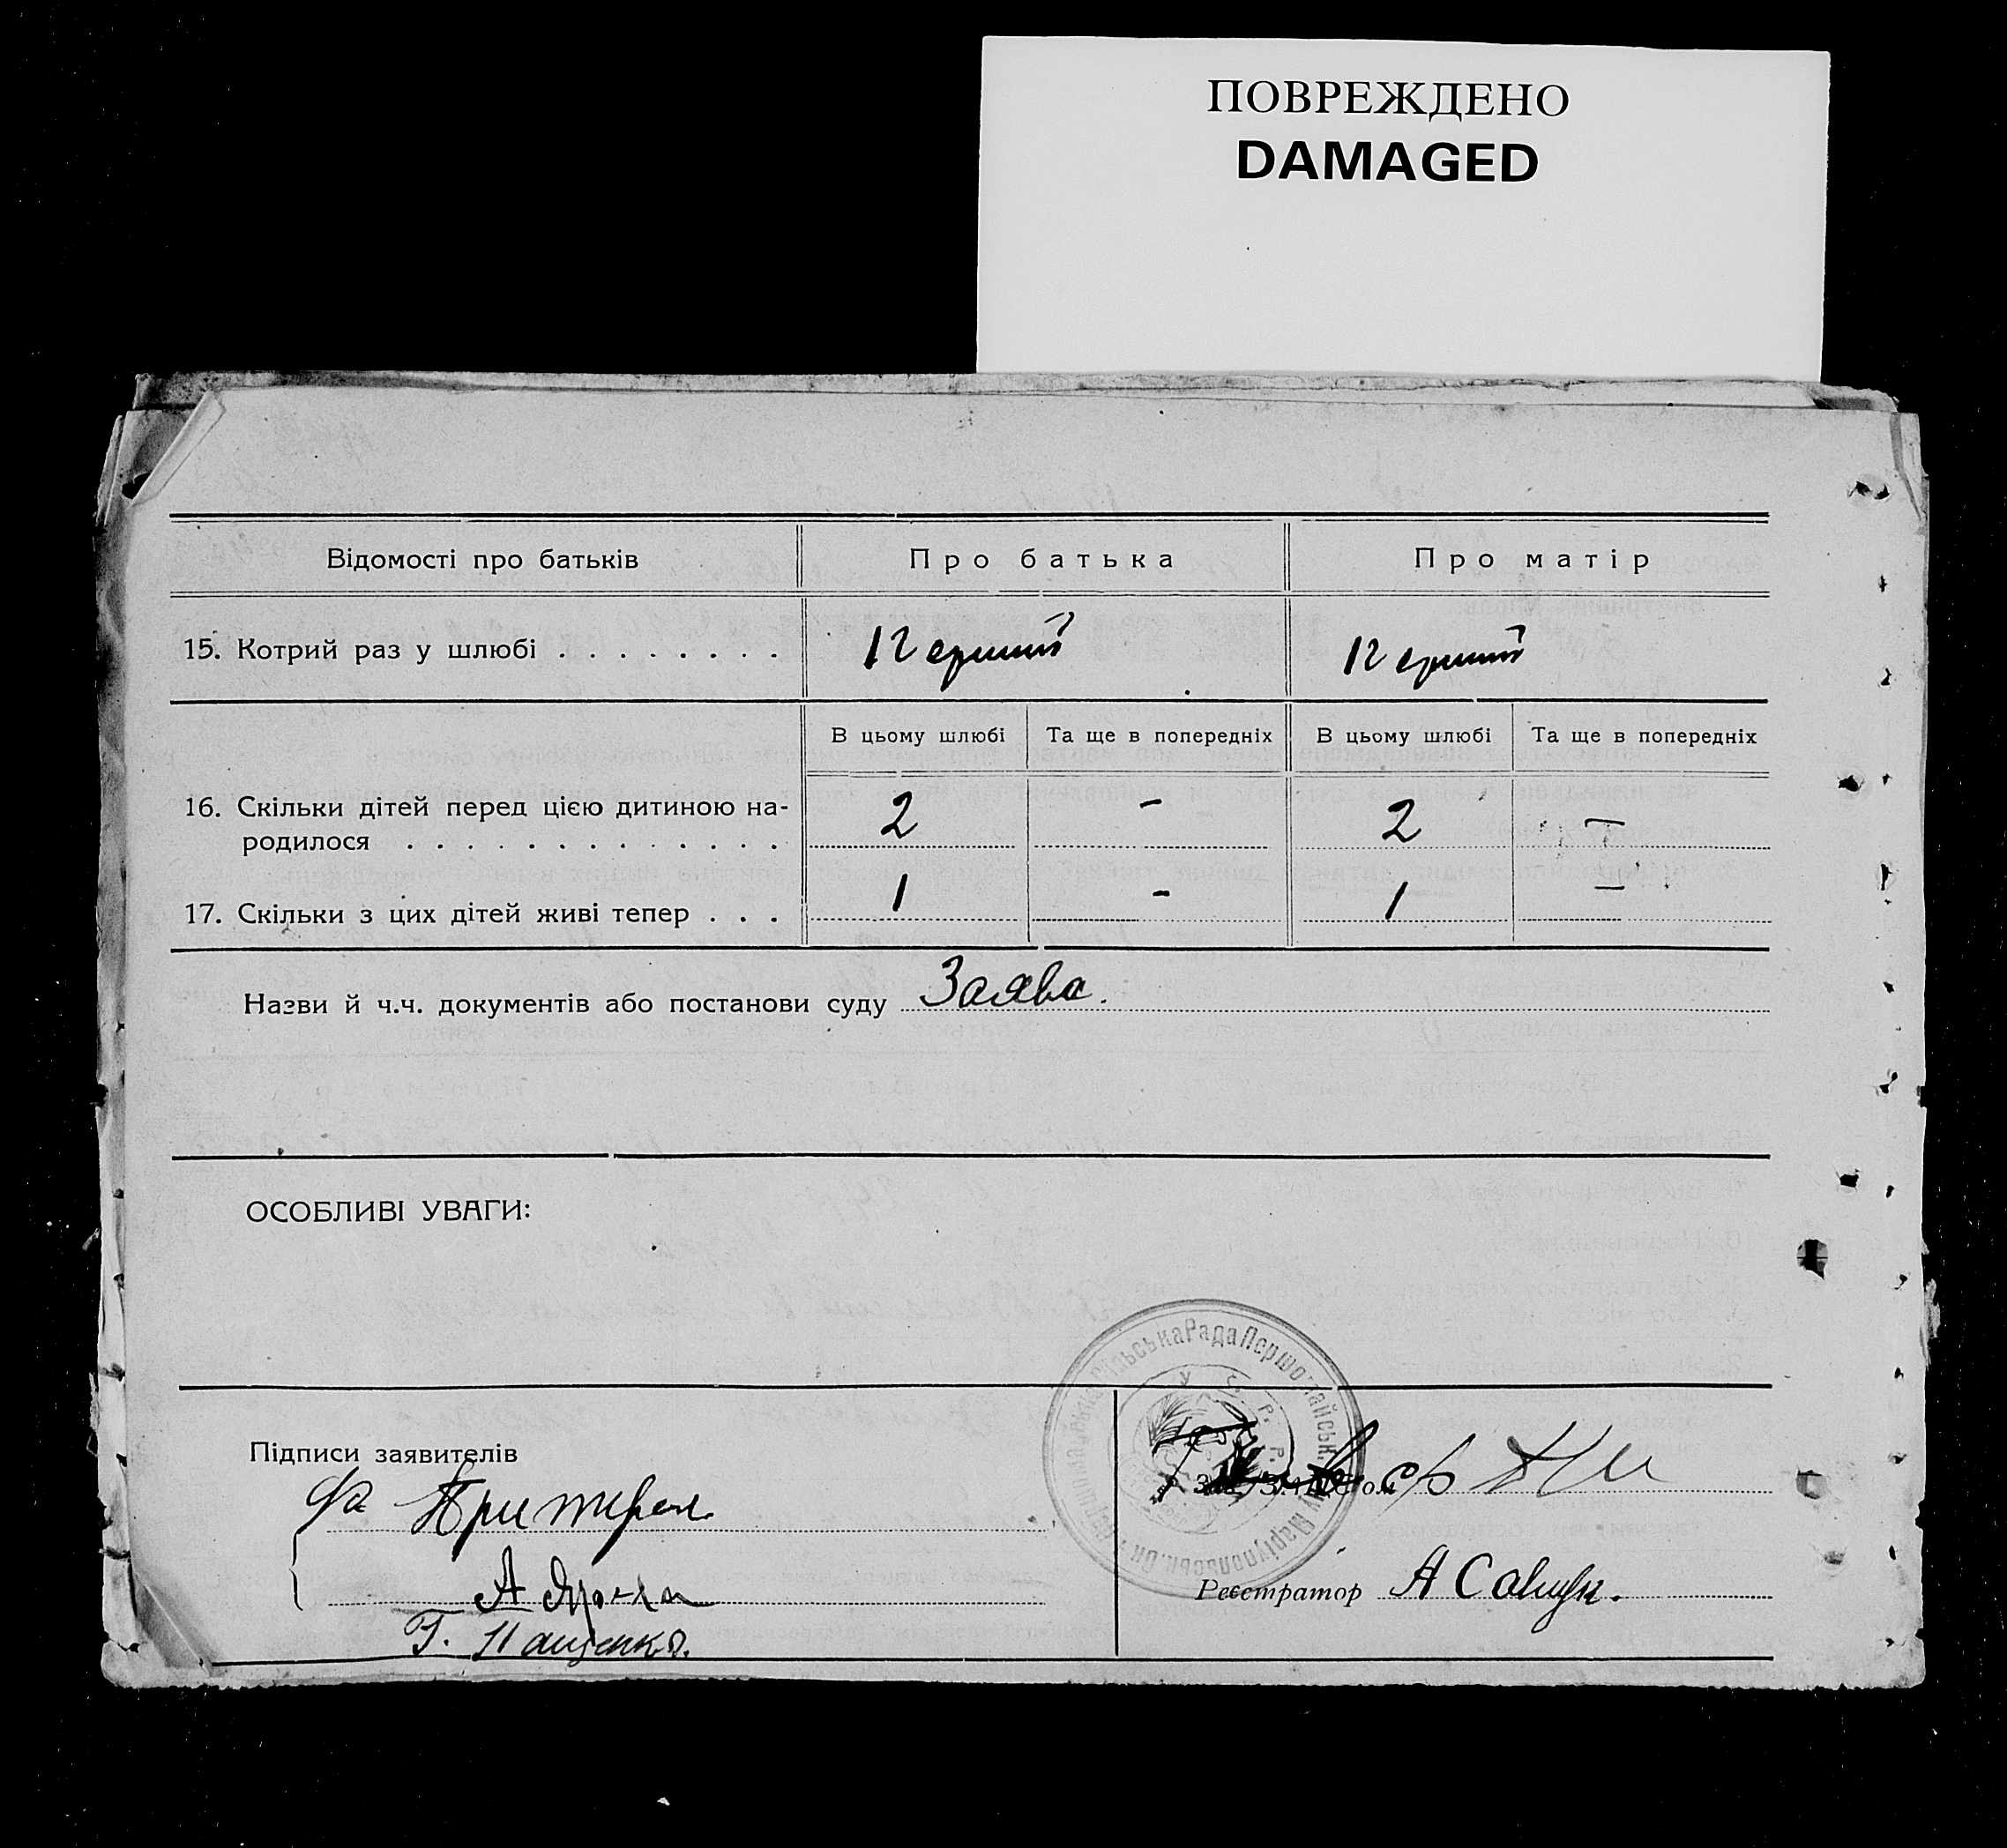 ПОВРЕЖДЕНО
DAMAGED
Відомості про батьків
Про батька
Про матір
15. Котрий раз у шлюбі . . . . . . . .
Перший
Перший
В цьому шлюбі
Та ще в попередніх
В цьому шлюбі
Та ще в попередніх
16. Скільки дітей перед цією дитиною на-
родилося . . . . . . . . . . . . .
2
-
2
-
17. Скільки з цих дітей живі тепер . . .
1
-
1
-
Назви й ч.ч. документів або постанови суду Заява.
ОСОБЛИВІ УВАГИ:
Рада Першотравнева
У. С. Р. Р.
Підписи заявителів
За
А
Г. Пащенко.
Реєстратор А Савчук.